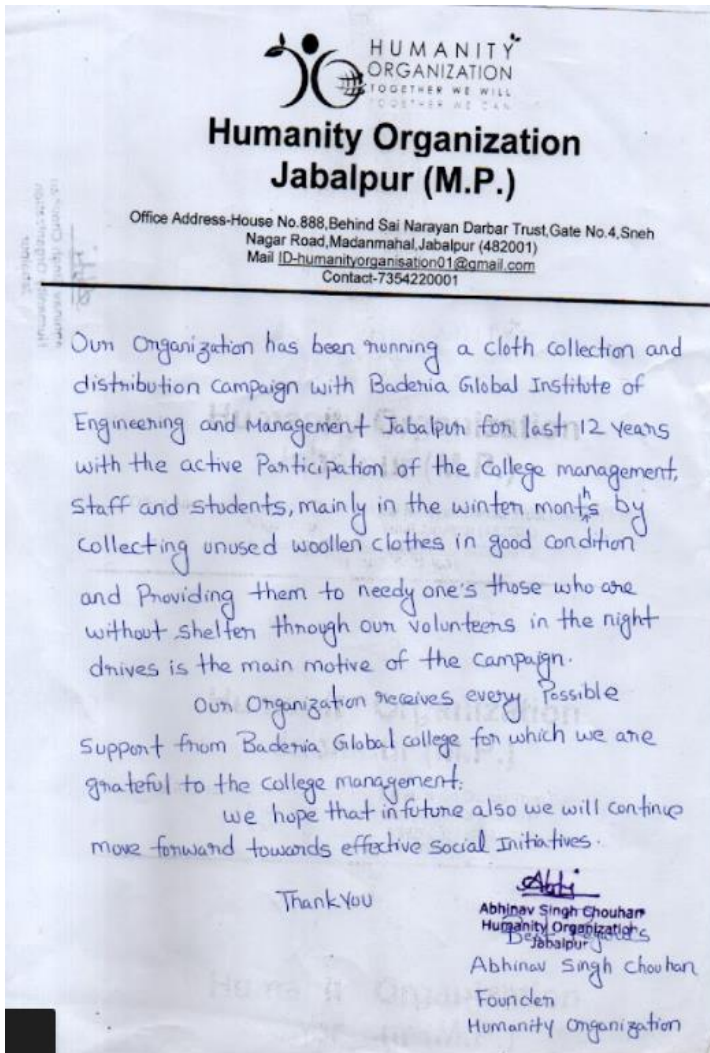 HUMANITY
ORGANIZATION
TOGETHER WE WILL
TOGETHER WE CAN
Humanity Organization
Jabalpur (M.P.)
Office Address-House No.888,Behind Sai Narayan Darbar Trust,Gate No.4,Sneh
Nagar Road,Madanmahal,Jabalpur (482001)
Mail ID-humanityorganisation01@gmail.com
Contact-7354220001
Our Organization has been running a cloth collection and
distribution campaign with Baderia Global Institute of
Engineering and Management Jabalpur for last 12 years
with the active Participation of the College management,
Staff and students, mainly in the winter months by
Collecting unused woollen clothes in good condition
and Providing them to needy one's those who are
without shelter through our volunteers in the night
drives is the main motive of the Campaign.
Our Organization receives every Possible
Support from Baderia Global college for which we are
grateful to the College management.
We hope that in future also we will continue
move forward towards effective Social Initiatives.
Thank You
Abhi
Abhinav Singh Chouhan
Humanity Organization
Jabalpur
Best Regards
Abhinav Singh Chouhan
Founder
Humanity Organization